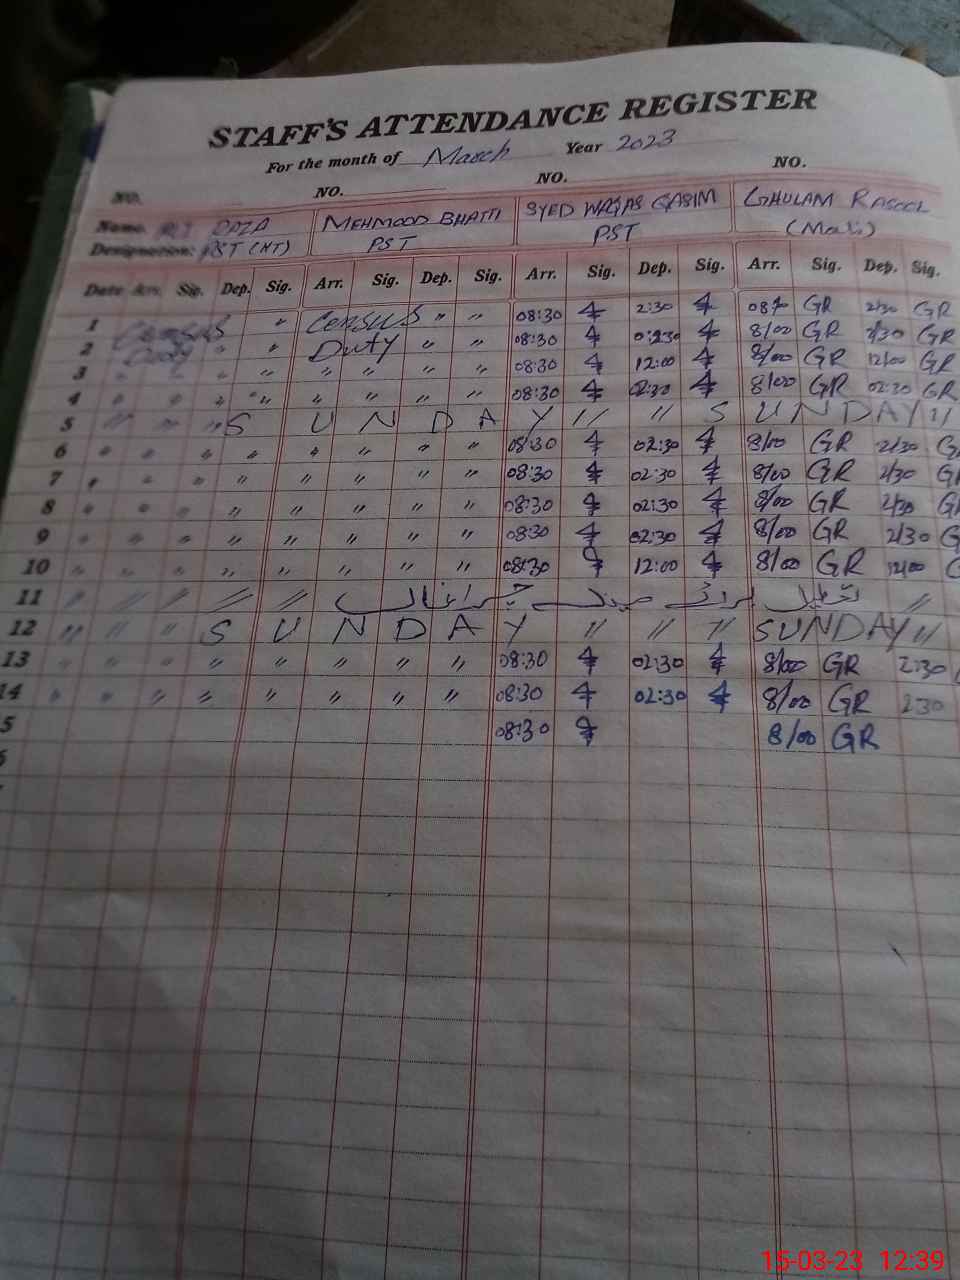 STAFF'S ATTENDANCE REGISTER
For the month of March Year 2023
NO. NO. NO. NO.
Name. RAZA MEHMOOD BHATTI SYED WAQAS QASIM GHULAM RASOOL
Designation: PST (NT) PST PST (Mali)
Date Arr. Sig. Dep. Sig. Arr. Sig. Dep. Sig. Arr. Sig. Dep. Sig. Arr. Sig. Dep. Sig.
1 Census " Census " " 08:30 2:30 GR 2/30 GR
2 Duty " " Duty " " 08:30 02:30 8/00 GR 2/30 GR
3 " " " " " " " " 08:30 12:00 8/00 GR 12/00 GR
4 " " " " " " " " 08:30 02:30 8/00 GR 02:30 GR
5 " " " S U N D A Y " " S U N D A Y "
6 " " " " " " " " 08:30 02:30 8/00 GR 2/30 G
7 " " " " " " " " 08:30 02:30 8/00 GR 2/30 GR
8 " " " " " " " " 08:30 02:30 8/00 GR 2/30 G
9 " " " " " " " " 08:30 02:30 8/00 GR 2/30 G
10 " " " " " " " " 08:30 12:00 8/00 GR 12/00
11 " " " " " تعطیل برائے میلہ چراغاں "
12 " " " S U N D A Y " " " SUNDAY "
13 " " " " " " " " 08:30 02:30 8/00 GR 2:30
14 " " " " " " " " 08:30 02:30 8/00 GR 2:30
5 08:30 8/00 GR
15-03-23 12:39